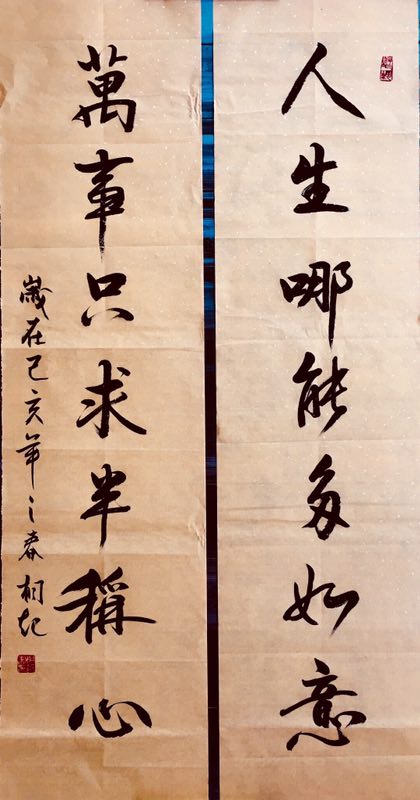 人生哪能多如意
萬事只求半稱心
歲在己亥年之春